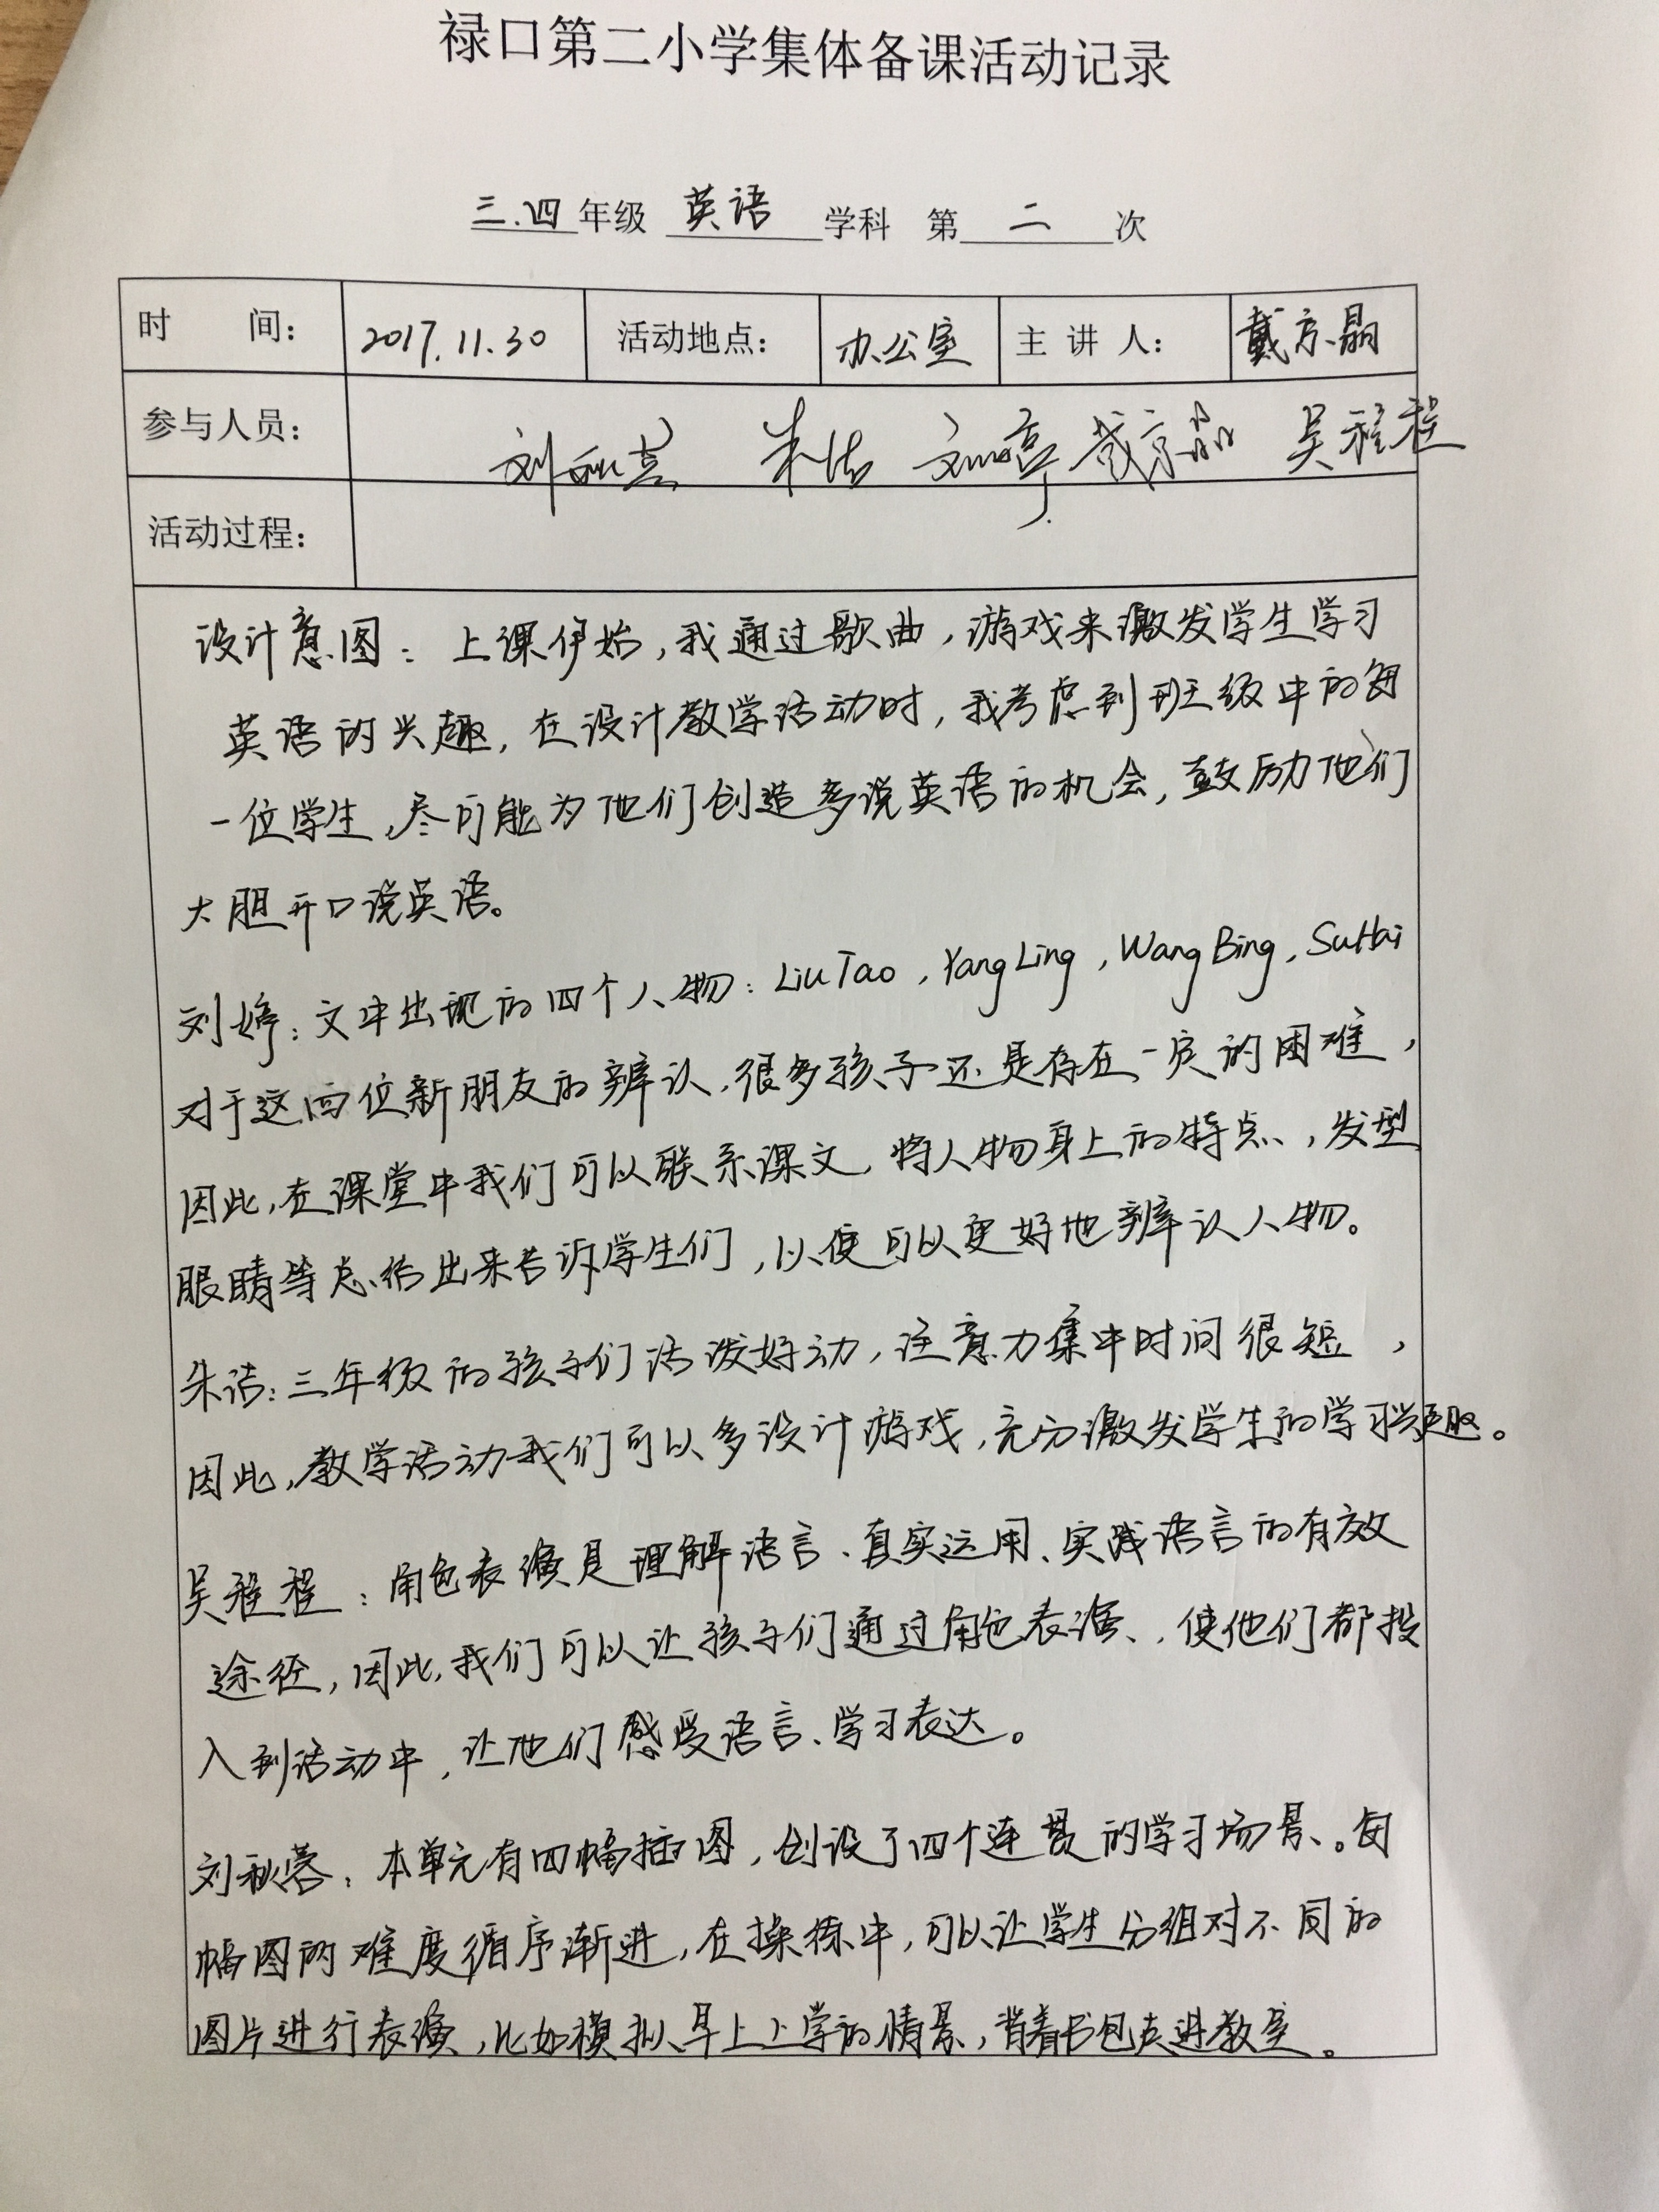 禄口第二小学集体备课活动记录
三.四年级 英语 学科 第 二 次
时 间： 2017.11.30 活动地点： 办公室 主 讲 人： 戴京晶
参与人员： 刘秋蓉 朱洁 刘婷 戴京晶 吴程程
活动过程：
设计意图：上课伊始，我通过歌曲，游戏来激发学生学习
英语的兴趣，在设计教学活动时，我考虑到班级中的每
一位学生，尽可能为他们创造多说英语的机会，鼓励他们
大胆开口说英语。
刘婷：文中出现的四个人物：Liu Tao，Yang Ling，Wang Bing，Su Hai
对于这四位新朋友的辨认，很多孩子还是存在一定的困难，
因此，在课堂中我们可以联系课文，将人物身上的特点、，发型
眼睛等总结出来告诉学生们，以便可以更好地辨认人物。
朱洁：三年级的孩子们活泼好动，注意力集中时间很短，
因此，教学活动我们可以多设计游戏，充分激发学生的学习兴趣。
吴程程：角色表演是理解语言、真实运用、实践语言的有效
途径，因此，我们可以让孩子们通过角色表演、，使他们都投
入到活动中，让他们感受语言、学习表达。
刘秋蓉：本单元有四幅插图，创设了四个连贯的学习场景、。每
幅图的难度循序渐进，在操练中，可以让学生分组对不同的
图片进行表演，比如模拟早上上学的情景，背着书包走进教室。